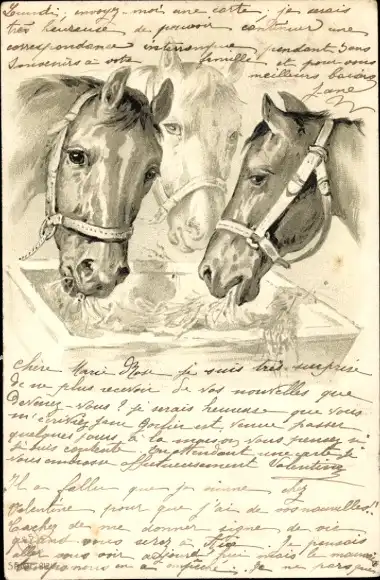 Lundi, envoyez-moi une carte, je serais
très heureuse de pouvoir continuer une
correspondance pendant 3 ans
Souvenirs à votre famille et pour vous
meilleurs baisers
Jane
Chère Marie Rose je suis très surprise
de ne plus recevoir de vos nouvelles que
devenez-vous? je serais heureuse que vous
m'écriviez, Jane est venue passer
quelques jours à la maison, vous pensez si
je suis contente. En attendant une carte je
vous embrasse affectueusement Valentine
Il a fallu que je vienne chez
Valentine pour que j'ai de vos nouvelles!!
Tachez de me donner signe de vie
quand vous serez à Je pensais
aller vous voir mais le mauvais
temps nous en a empêché. Je ne pars que